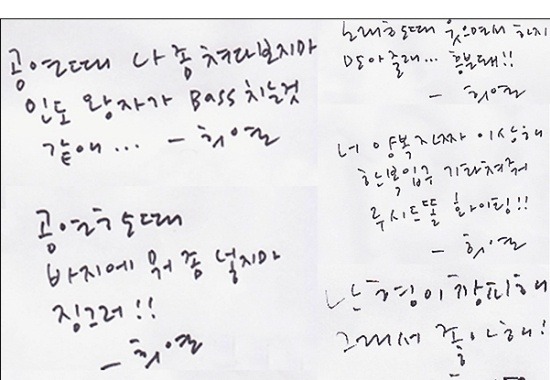 공연때 나 좀 쳐다보지마
인도 왕자가 Bass 치는것
같애... - 희열
공연할때
바지에 뭐 좀 넣지마
징그러!!
- 희열
노래할때 웃으면서 하지
말아줄래... 흥분돼!!
- 희열
너 양복 진짜 이상해
한복입구 기타쳐줘
루시드폴 화이팅!!
- 희열
난 형이 창피해
그래서 좋아해!